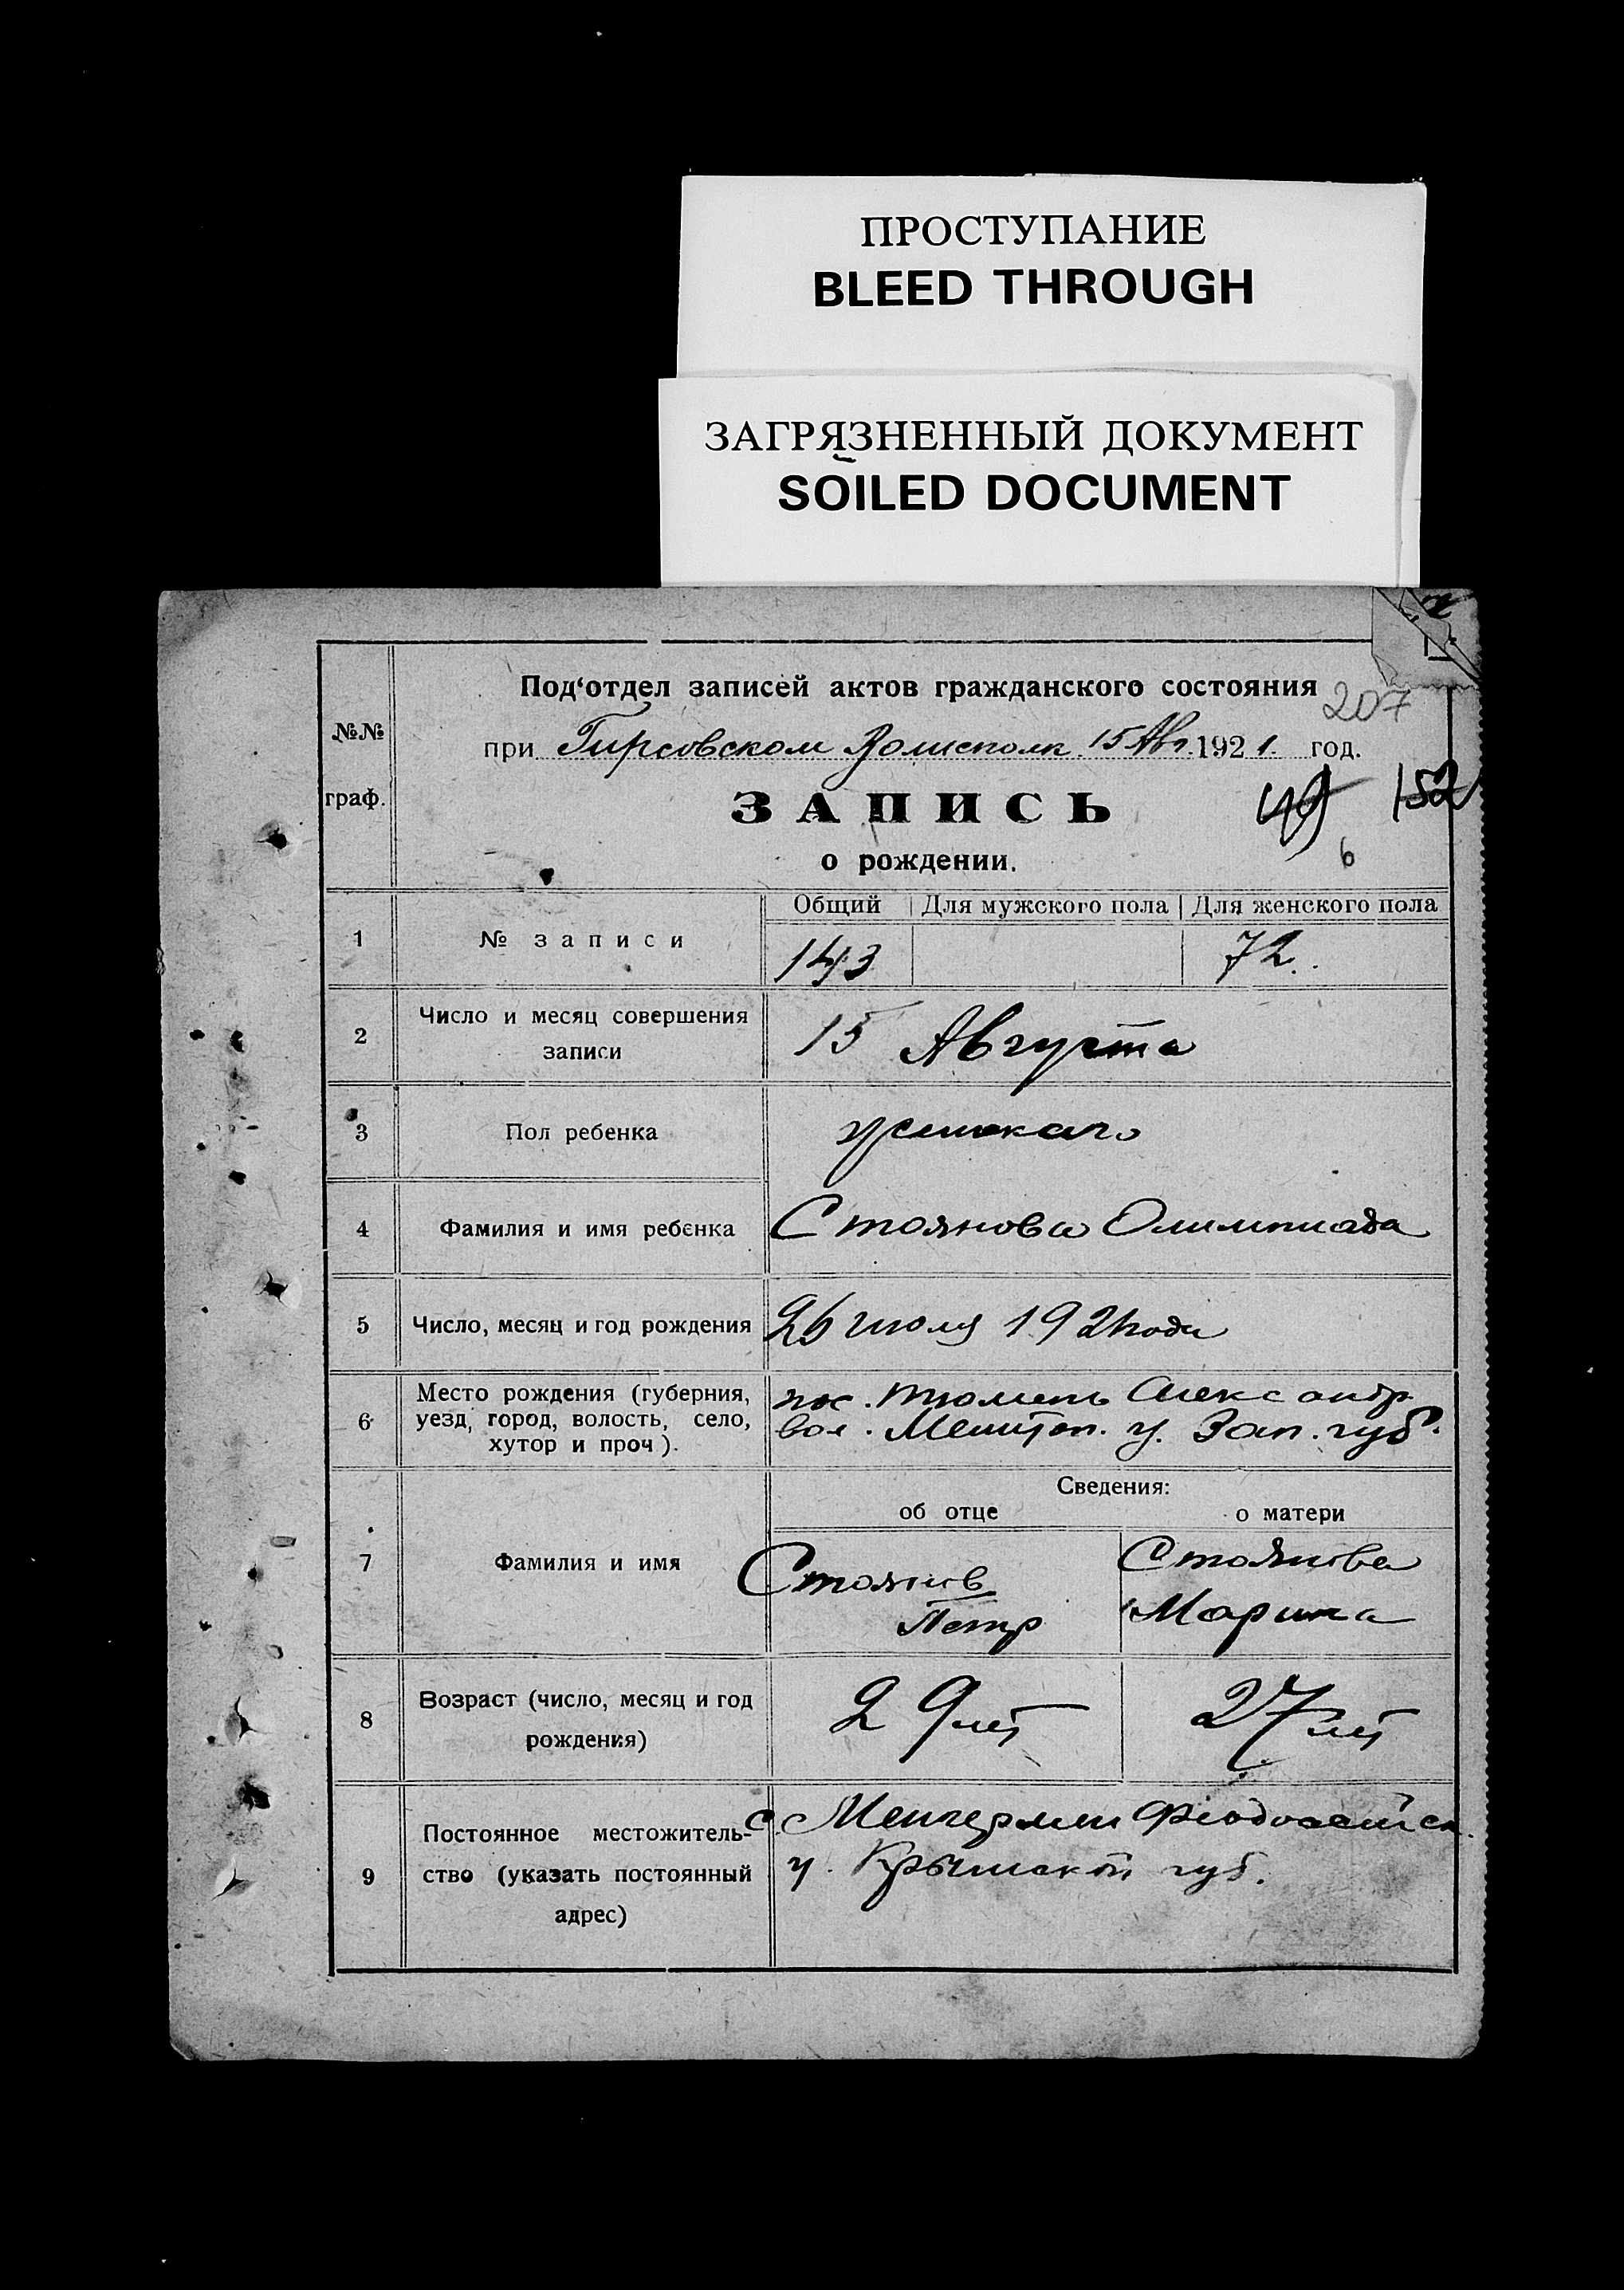 ПРОСТУПАНИЕ
BLEED THROUGH
ЗАГРЯЗНЕННЫЙ ДОКУМЕНТ
SOILED DOCUMENT
Под‘отдел записей актов гражданского состояния
207
№№
граф.
при Гирсовском Волисполк. 15 Авг. 1921. год.
ЗАПИСЬ
49 152
о рождении.
6
Общий Для мужского пола Для женского пола
1 № записи 143 72.
2 Число и месяц совершения
записи
15 Августа
3 Пол ребенка женскаго
4 Фамилия и имя ребенка Стоянова Олимпиада
5 Число, месяц и год рождения 26 июля 1921 года
6 Место рождения (губерния,
уезд, город, волость, село,
хутор и проч).
Тюмень Александр.
вол. Мелитоп. у. Зап. губ.
Сведения:
об отце о матери
7 Фамилия и имя
Стоянов Стоянова
Петр Марина
8 Возраст (число, месяц и год
рождения)
29 лет 27 лет
9 Постоянное местожитель-
ство (указать постоянный
адрес)
с. Феодосийск.
у. Крымской губ.